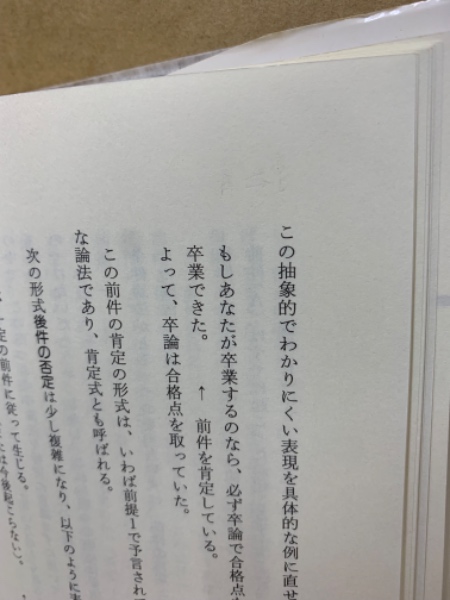 この抽象的でわかりにくい表現を具体的な例に直せ
もしあなたが卒業するのなら、必ず卒論で合格点
卒業できた。 ↑ 前件を肯定している。
よって、卒論は合格点を取っていた。
この前件の肯定の形式は、いわば前提1で予言され
な論法であり、肯定式とも呼ばれる。
次の形式後件の否定は少し複雑になり、以下のように
定の前件に従って生じる。
は今後起こらない。